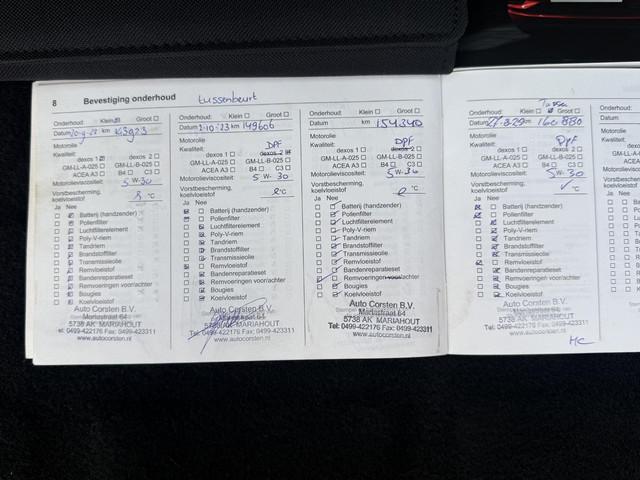 8 Bevestiging onderhoud
Onderhoud: Klein Groot
Motorolie
Kwaliteit:
dexos 1 dexos 2
GM-LL-A-025 GM-LL-B-025
ACEA A3 B4 C3
Motorolieviscositeit: 5 W-30
Vorstbescherming,
koelvloeistof °C
Ja Nee
Batterij (handzender)
Pollenfilter
Luchtfilterelement
Poly-V-riem
Tandriem
Brandstoffilter
Transmissieolie
Remvloeistof
Bandenreparatieset
Remvoeringen voor/achter
Bougies
Koelvloeistof
Auto Corsten B.V.
Mariastraat 64
5738 AK MARIAHOUT
Tel: 0499-422176 Fax: 0499-423311
www.autocorsten.nl
tussenbeurt
Onderhoud: Klein Groot
Datum 2-10-'23 km 149606
Motorolie
Kwaliteit: DPF
dexos 1 dexos 2
GM-LL-A-025 GM-LL-B-025
ACEA A3 B4 C3
Motorolieviscositeit: 5 W-30
Vorstbescherming,
koelvloeistof °C
Ja Nee
Batterij (handzender)
Pollenfilter
Luchtfilterelement
Poly-V-riem
Tandriem
Brandstoffilter
Transmissieolie
Remvloeistof
Bandenreparatieset
Remvoeringen voor/achter
Bougies
Koelvloeistof
Auto Corsten B.V.
Mariastraat 64
5738 AK MARIAHOUT
Tel: 0499-422176 Fax: 0499-423311
www.autocorsten.nl
Onderhoud: Klein Groot
Datum km 154340
Motorolie
Kwaliteit: DPF
dexos 1 dexos 2
GM-LL-A-025 GM-LL-B-025
ACEA A3 B4 C3
Motorolieviscositeit: 5 W-30
Vorstbescherming,
koelvloeistof °C
Ja Nee
Batterij (handzender)
Pollenfilter
Luchtfilterelement
Poly-V-riem
Tandriem
Brandstoffilter
Transmissieolie
Remvloeistof
Bandenreparatieset
Remvoeringen voor/achter
Bougies
Koelvloeistof
Auto Corsten B.V.
Mariastraat 64
5738 AK MARIAHOUT
Tel: 0499-422176 Fax: 0499-423311
www.autocorsten.nl
Tussen
Onderhoud: Klein Groot
Datum km 160 880
Motorolie
Kwaliteit: DPF
dexos 1 dexos 2
GM-LL-A-025 GM-LL-B-025
ACEA A3 B4 C3
Motorolieviscositeit: 5 W-30
Vorstbescherming,
koelvloeistof °C
Ja Nee
Batterij (handzender)
Pollenfilter
Luchtfilterelement
Poly-V-riem
Tandriem
Brandstoffilter
Transmissieolie
Remvloeistof
Bandenreparatieset
Remvoeringen voor/achter
Bougies
Koelvloeistof
Auto Corsten B.V.
Mariastraat 64
5738 AK MARIAHOUT
Tel: 0499-422176 Fax: 0499-423311
www.autocorsten.nl
MC